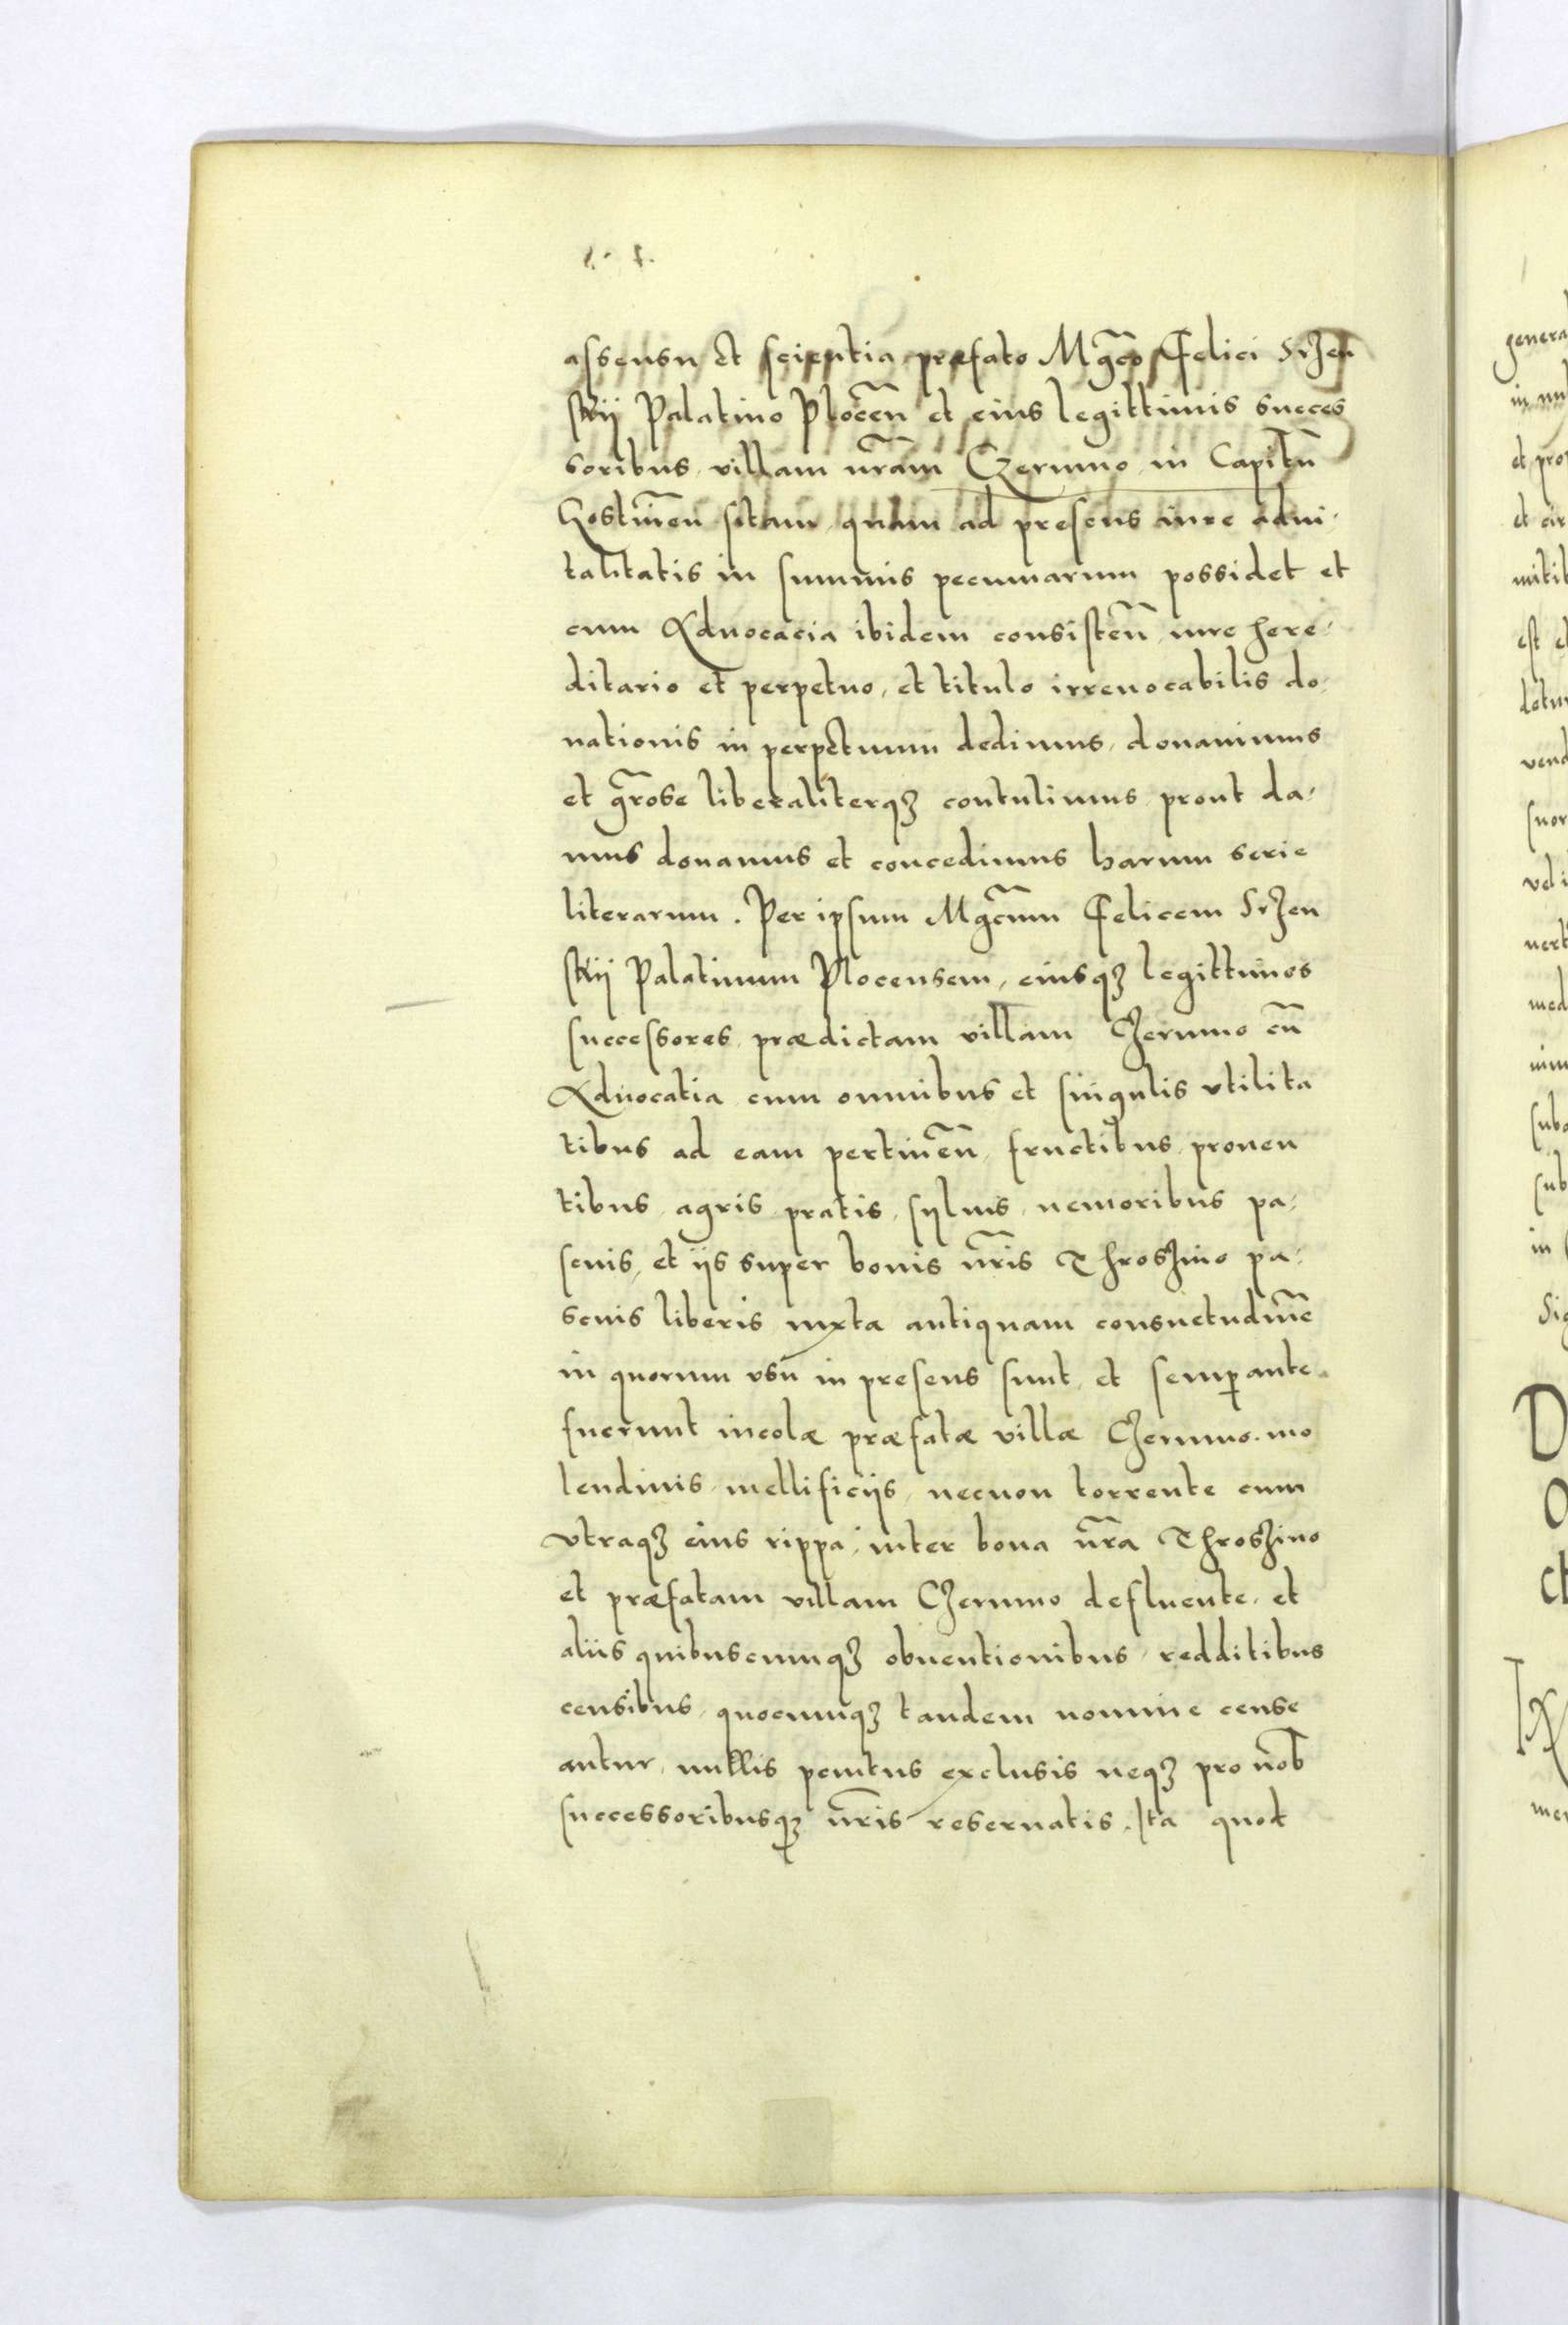 assensu et scientia præfato Mg̃co Felici Srzen
skij Palatino Plocen̄ et eius legittimis succes
soribus, villam nr̃am Czermno in Capitn̄
Gostinen̄ sitam, quam ad presens iure adui-
talitatis in summis pecuniarum possidet et
cum Aduocacia ibidem consisten̄, iure here-
ditario et perpetuo, et titulo irreuocabilis do
nationis in perpetuum dedimus, donauimus
et gr̃ose liberaliterqȝ contulimus, prout da-
mus donamus et concedimus harum serie
literarum. Per ipsum Mg̃cum Felicem Srzen
skij Palatinum Plocensem, eiusqȝ legittimos
successores, prædictam villam Czermno cū
Aduocatia cum omnibus et singulis vtilita
tibus ad eam pertinen̄, fructibus, prouen
tibus, agris, pratis, syluis, nemoribus, pa-
scuis, et ijs super bonis nr̃is Throszino pa-
scuis liberis iuxta antiquam consuetudinē
in quorum vsu in presens sunt, et semp̱ ante
fuerunt incolæ præfatæ villæ Czermno. mo
lendinis, mellificijs, necnon torrente cum
vtraqȝ eius rippa, inter bona nr̃a Throszino
et præfatam villam Czermno defluente, et
aliis quibuscumqȝ obuentionibus, redditibus
censibus, quocumqȝ tandem nomine cense
antur, nullis penitus exclusis neqȝ pro nob̃
successoribusqȝ nr̃is reseruatis. Ita quod